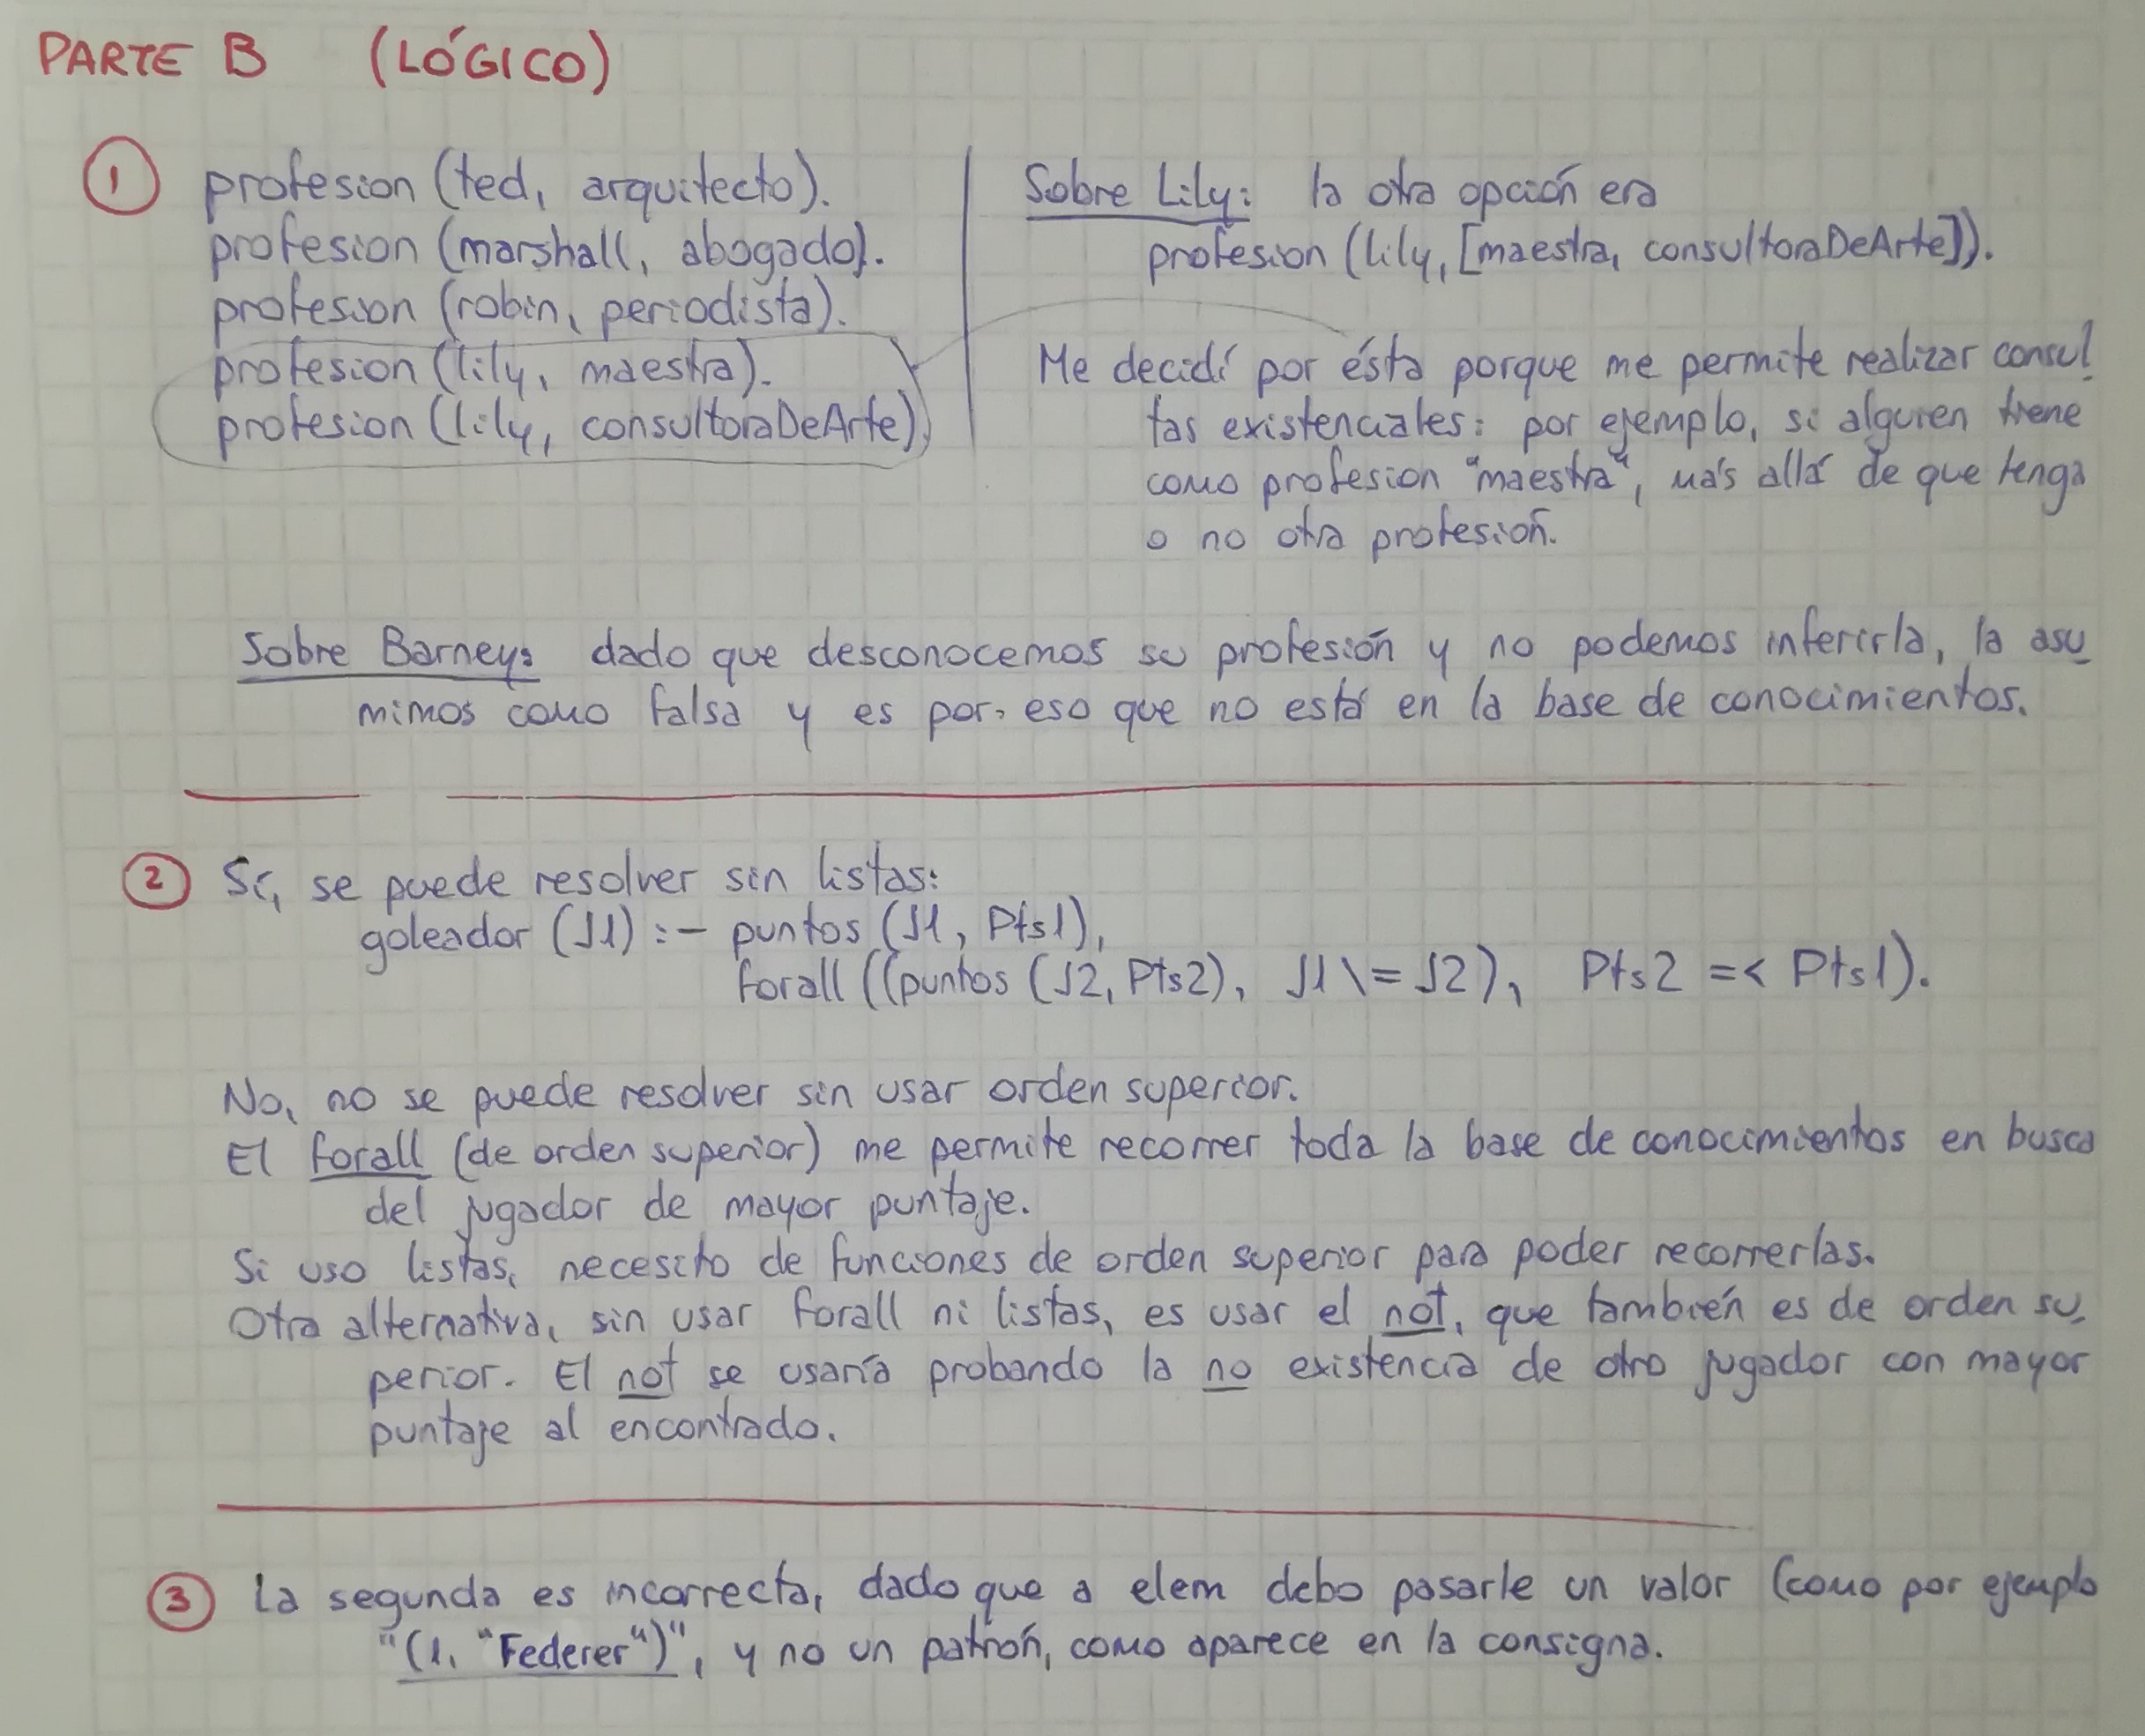 PARTE B (LÓGICO)
1 profesion (ted, arquitecto).
profesion (marshall, abogado).
profesion (robin, periodista).
profesion (lily, maestra).
profesion (lily, consultoraDeArte).
Sobre Lily: la otra opción era
profesion (lily, [maestra, consultoraDeArte]).
Me decidí por ésta porque me permite realizar consul
tas existenciales: por ejemplo, si alguien tiene
como profesion "maestra", más allá de que tenga
o no otra profesión.
Sobre Barney: dado que desconocemos su profesión y no podemos inferirla, la asu
mimos como falsa y es por eso que no está en la base de conocimientos.
2 Sí, se puede resolver sin listas:
goleador (J1) :- puntos (J1, Pts1),
forall ((puntos (J2, Pts2), J1 \= J2), Pts2 =< Pts1).
No, no se puede resolver sin usar orden superior.
El forall (de orden superior) me permite recorrer toda la base de conocimientos en busca
del jugador de mayor puntaje.
Si uso listas, necesito de funciones de orden superior para poder recorrerlas.
Otra alternativa, sin usar forall ni listas, es usar el not, que también es de orden su
perior. El not se usaría probando la no existencia de otro jugador con mayor
puntaje al encontrado.
3 La segunda es incorrecta, dado que a elem debo pasarle un valor (como por ejemplo
"(1, "Federer")", y no un patrón, como aparece en la consigna.